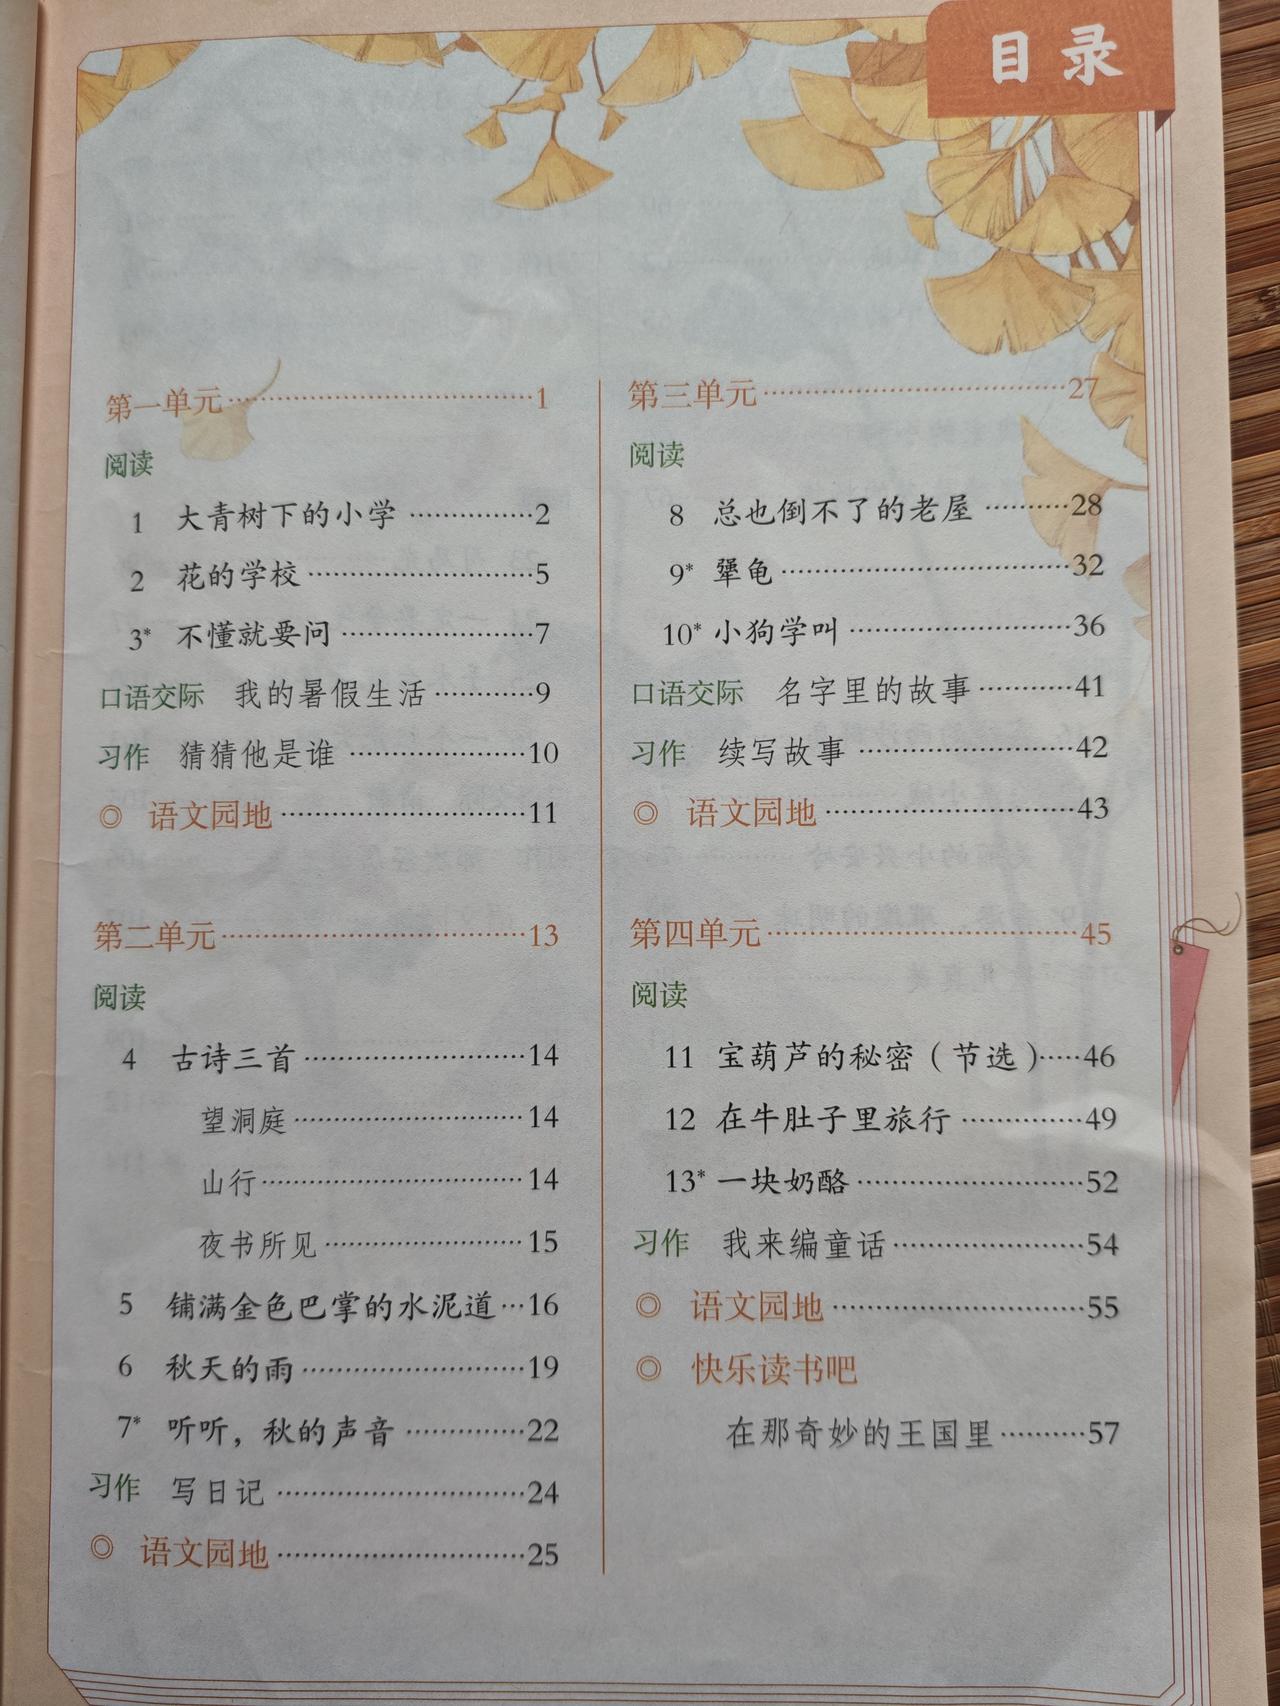 目录
第一单元……1
阅读
1 大青树下的小学……2
2 花的学校……5
3* 不懂就要问……7
口语交际 我的暑假生活……9
习作 猜猜他是谁……10
◎ 语文园地……11
第二单元……13
阅读
4 古诗三首……14
望洞庭……14
山行……14
夜书所见……15
5 铺满金色巴掌的水泥道…16
6 秋天的雨……19
7* 听听，秋的声音……22
习作 写日记……24
◎ 语文园地……25
第三单元……27
阅读
8 总也倒不了的老屋……28
9* 犟龟……32
10* 小狗学叫……36
口语交际 名字里的故事……41
习作 续写故事……42
◎ 语文园地……43
第四单元……45
阅读
11 宝葫芦的秘密（节选）……46
12 在牛肚子里旅行……49
13* 一块奶酪……52
习作 我来编童话……54
◎ 语文园地……55
◎ 快乐读书吧
在那奇妙的王国里……57